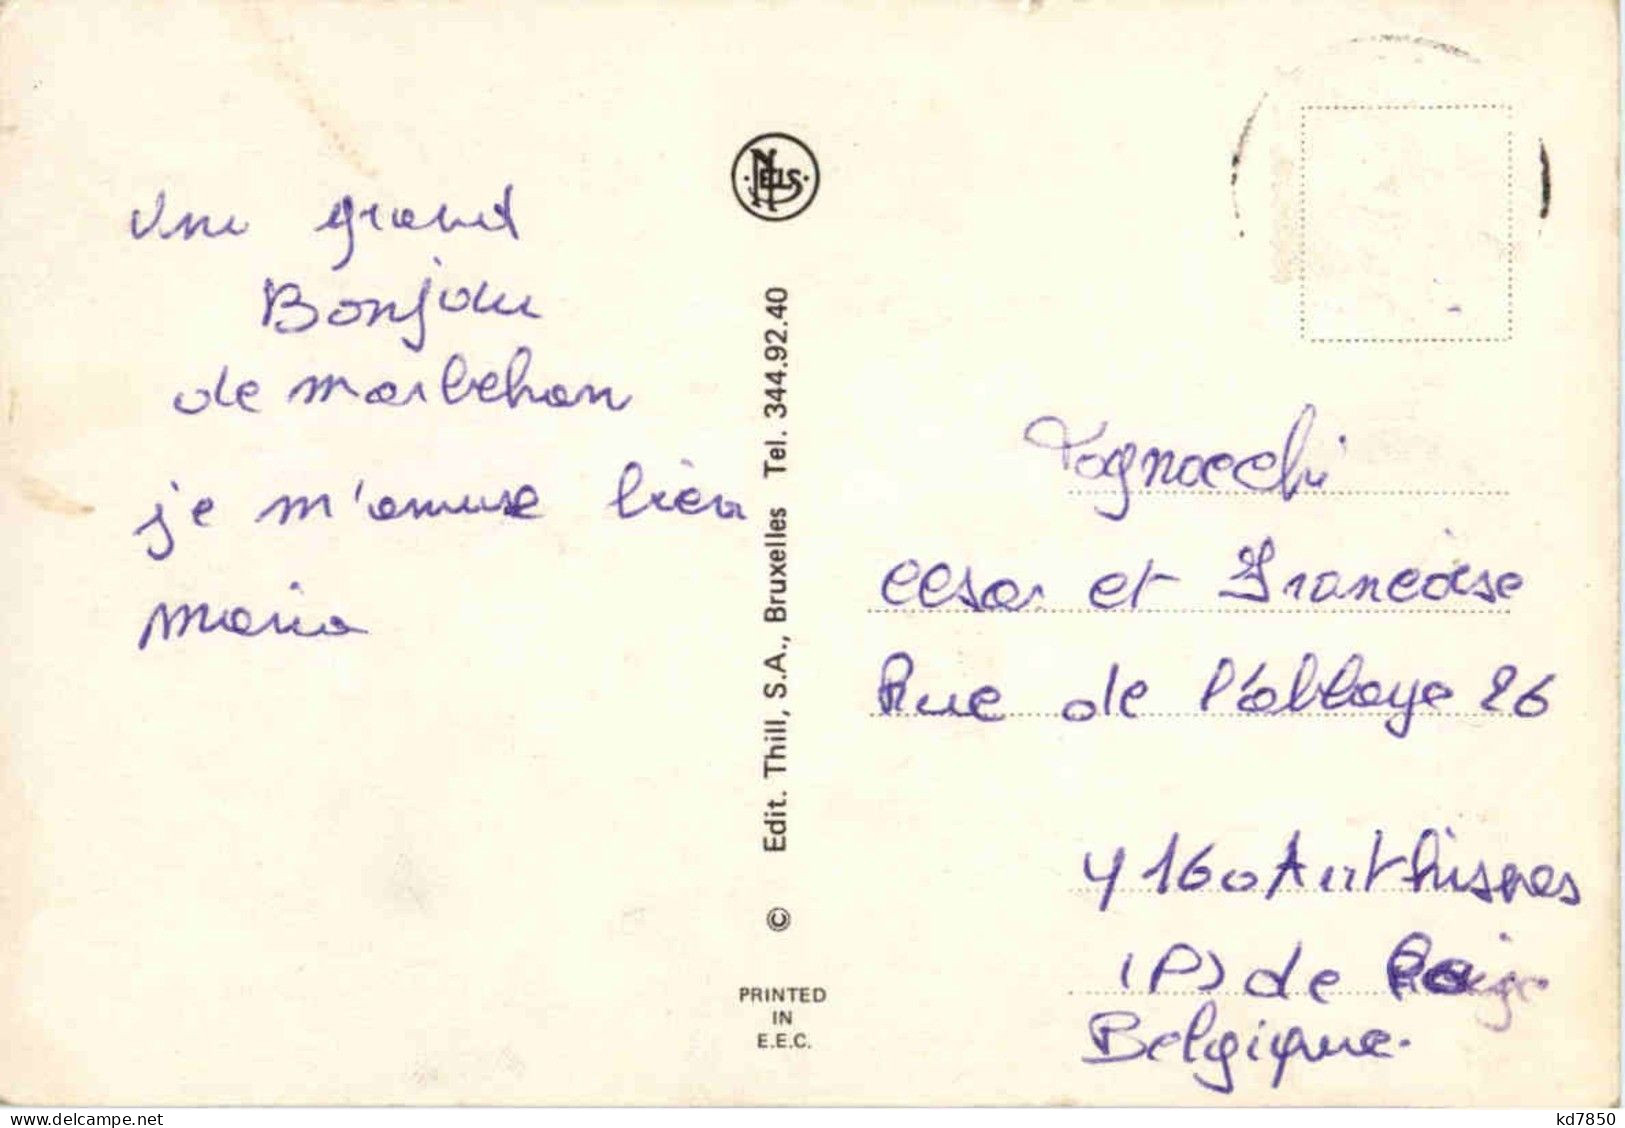 une grand
Bonjour
de marbehan
je m'amuse bien
maria
NELS
© Edit. Thill, S.A., Bruxelles Tel. 344.92.40
PRINTED
IN
E.E.C.
Tognocchi
cesar et Françoise
Rue de l'abbaye 26
4160 Anthisnes
(P) de Liège
Belgique.
www.delcampe.net
kd7850